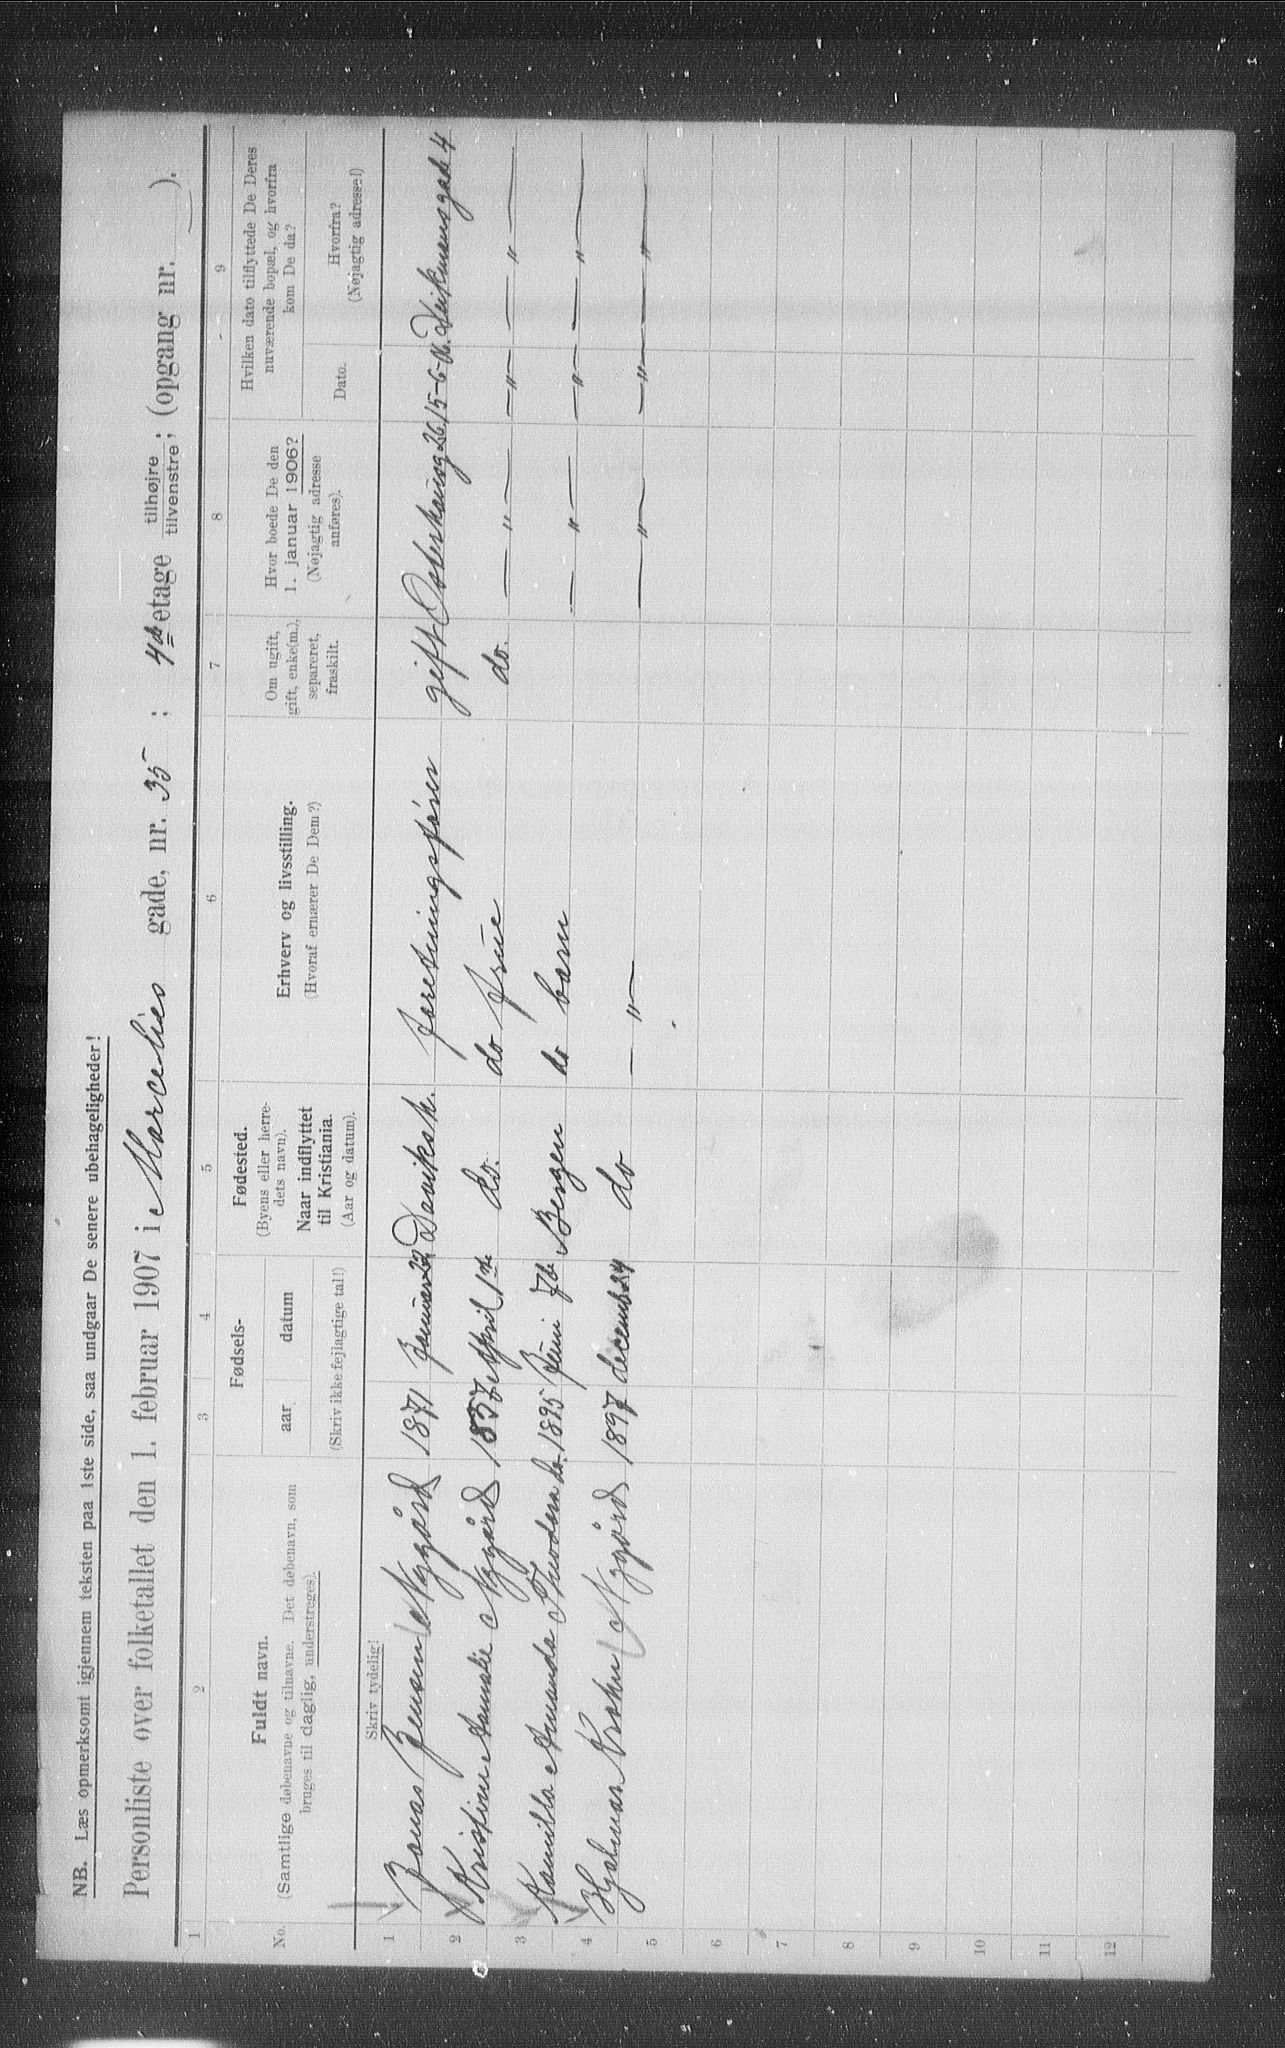 NB. Læs opmerksomt igjennem teksten paa 1ste side, saa undgaar De senere ubehageligheder!
Personliste over folketallet den 1. februar 1907 i Marcelies gade, nr. 35 ; 4de etage tilhøjre tilvenstre ; (opgang nr. ).
1 2 3 4 5 6 7 8 9
No.
Fuldt navn.
(Samtlige døbenavne og tilnavne. Det døbenavn, som
bruges til daglig, understreges).
Fødsels-
aar datum
(Skriv ikke fejlagtige tal!)
Fødested.
(Byens eller herre-
dets navn).
Naar indflyttet
til Kristiania.
(Aar og datum).
Erhverv og livsstilling.
(Hvoraf ernærer De Dem?)
Om ugift,
gift, enke(m.),
separeret,
fraskilt.
Hvor boede De den
1. januar 1906?
(Nøjagtig adresse
anføres).
Hvilken dato tilflyttede De Deres
nuværende bopæl, og hvorfra
kom De da?
Dato.
Hvorfra?
(Nøjagtig adresse!)
Skriv tydelig!
1 Jonas Jensen Nygård 1871 Januar 22 Daviksh. forretningsfører gift 26 15-6-06. Deikmansgade 4
2 Kristine Amalie Nygård 1857 April 1ste do. do frue do. — " — — " — — " —
3 Kamilla Amanda Theodora do. 1895 Juni 7de Bergen do barn — " — — " — — " —
4 Hjalmar Krohn Nygård 1897 december 24 do — " — — " — — " — — " —
5
6
7
8
9
10
11
12